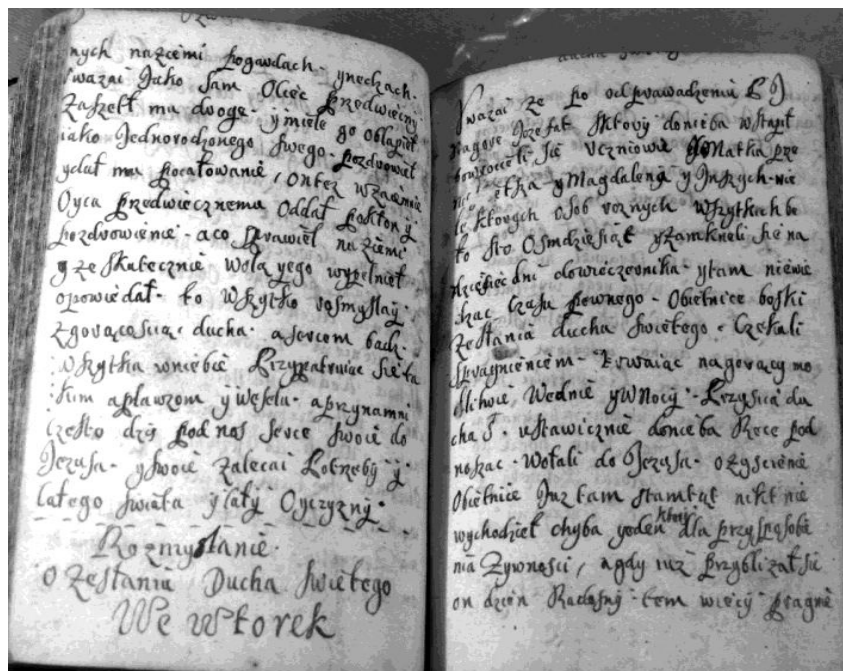 nych naszemi pogawdach. ynechach.
Vwazai Jako Sam Ociec przedwieczny
Zaszett mu droge. y miele go oblapiet
iako Jednorodzonego swego. pozdrowiel
ydał mu pocałowanie, Ontez wzaiemnie
Oyca przedwiecznemu Oddał pokłon y
pozdrowienie. aco sprawieł na ziemi
y ze skutecznie wolą yego wypełnieł
opowiedał. to wszytko rosmyslay.
zgorącoscią. ducha. asercem bądz.
wszytka wniebie Przypatruiąc się ta
kim aplawzom y węselu. aprzynamni
często dzis podnos serce swoie do
Jezusa. yswoie zalecai Potrzeby y
całego swiata ycały Oyczyzny.
Rozmyslanie.
o Zesłaniu Ducha swietego
We wtorek
Vwazai ze po odprawadzeniu P J
nagore Jozefat sktory donieba wstąpił
powrocieli sie Vczniowie Matka prze
yMagdalena y Inszych. nie
ktorych osob roznych wszytkich be
to sto Osmdziesiąt yzamkneli sie na
dziesięc dni dowieczernika. ytam niewie
dzac czasu pewnego. Obietnice boski
Zesłania ducha swietego. Czekali
spragnieniem. trwaiąc nagorący mo
dlitwie, Wednie yWnocy. Przyscia du
cha S. ustawicznie donieba Rece pod
nosząc. Wołali do Jezusa. oZyscienie
Obietnice Juz tam stamtąt nikt nie
wychodzieł chyba yeden ktory dla przysposobie
nia Zywnosci, agdy iuz Przyblizał sie
on dzien Radosny. tem wiecy pragnie